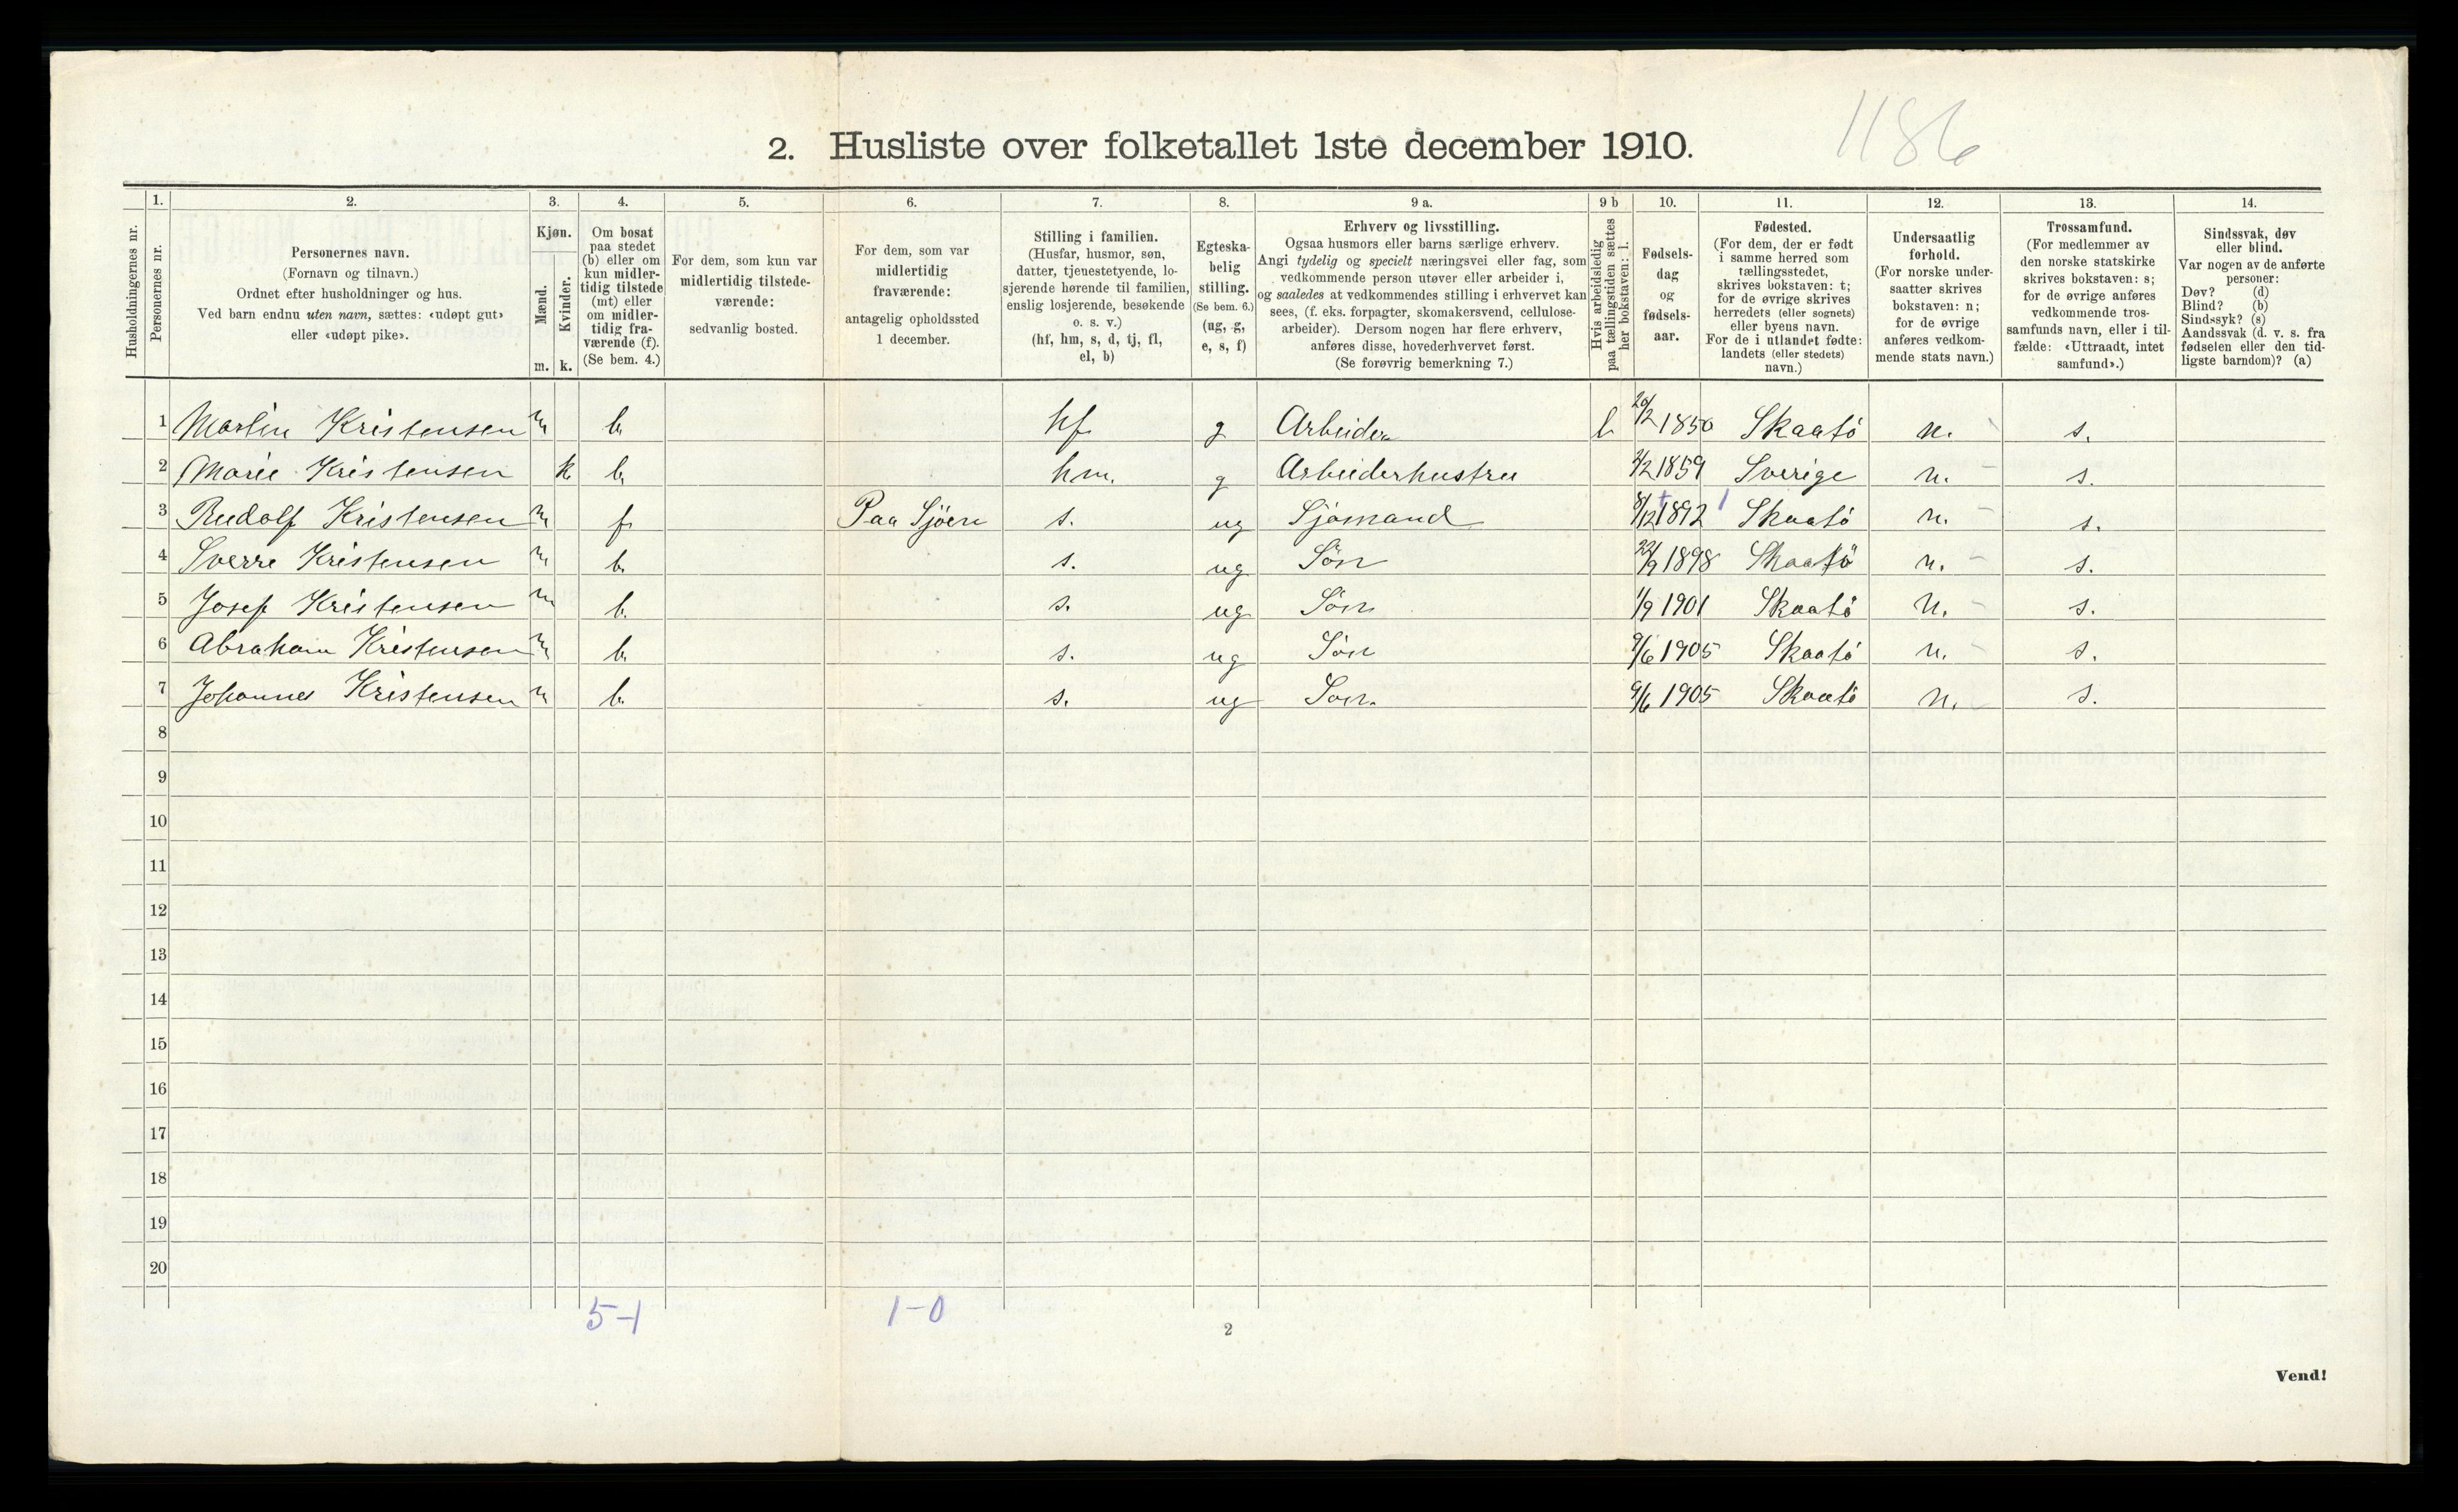 1186
2. Husliste over folketallet 1ste december 1910.
Husholdningernes nr.
1.
Personernes nr.
2.
Personernes navn.
(Fornavn og tilnavn.)
Ordnet efter husholdninger og hus.
Ved barn endnu uten navn, sættes: «udøpt gut»
eller «udøpt pike».
3.
Kjøn.
Mænd.
m.
Kvinder.
k.
4.
Om bosat
paa stedet
(b) eller om
kun midler-
tidig tilstede
(mt) eller
om midler-
tidig fra-
værende (f).
(Se bem. 4.)
5.
For dem, som kun var
midlertidig tilstede-
værende:
sedvanlig bosted.
6.
For dem, som var
midlertidig
fraværende:
antagelig opholdssted
1 december.
7.
Stilling i familien.
(Husfar, husmor, søn,
datter, tjenestetyende, lo-
sjerende hørende til familien,
enslig losjerende, besøkende
o. s. v.)
(hf, hm, s, d, tj, fl,
el, b)
8.
Egteska-
belig
stilling.
(Se bem. 6.)
(ug, g,
e, s, f)
9 a.
Erhverv og livsstilling.
Ogsaa husmors eller barns særlige erhverv.
Angi tydelig og specielt næringsvei eller fag, som
vedkommende person utøver eller arbeider i,
og saaledes at vedkommendes stilling i erhvervet kan
sees, (f. eks. forpagter, skomakersvend, cellulose-
arbeider). Dersom nogen har flere erhverv,
anføres disse, hovederhvervet først.
(Se forøvrig bemerkning 7.)
9 b
Hvis arbeidsledig
paa tællingstiden sættes
her bokstaven: l.
10.
Fødsels-
dag
og
fødsels-
aar.
11.
Fødested.
(For dem, der er født
i samme herred som
tællingsstedet,
skrives bokstaven: t;
for de øvrige skrives
herredets (eller sognets)
eller byens navn.
For de i utlandet fødte:
landets (eller stedets)
navn.)
12.
Undersaatlig
forhold.
(For norske under-
saatter skrives
bokstaven: n;
for de øvrige
anføres vedkom-
mende stats navn.)
13.
Trossamfund.
(For medlemmer av
den norske statskirke
skrives bokstaven: s;
for de øvrige anføres
vedkommende tros-
samfunds navn, eller i til-
fælde: «Uttraadt, intet
samfund».)
14.
Sindssvak, døv
eller blind.
Var nogen av de anførte
personer:
Døv? (d)
Blind? (b)
Sindssyk? (s)
Aandssvak (d. v. s. fra
fødselen eller den tid-
ligste barndom)? (a)
1 Martin Kristensen m b. hf g Arbeider l 20/2 1850 Skaatö n. s.
2 Marie Kristensen k b. hm. g Arbeiderhustru 2/2 1859 Sverige n. s.
3 Rudolf Kristensen m f Paa Sjöen s. ug Sjömand 8/12 1892 Skaatö n. s.
4 Sverre Kristensen m b. s. ug Sön 22/9 1898 Skaatö n. s.
5 Josef Kristensen m b. s. ug Sön 1/9 1901 Skaatö n. s.
6 Abraham Kristensen m b. s. ug Sön 9/6 1905 Skaatö n. s.
7 Johannes Kristensen m b. s. ug Sön. 9/6 1905 Skaatö n. s.
8
9
10
11
12
13
14
15
16
17
18
19
20
5-1 1-0
2
Vend!